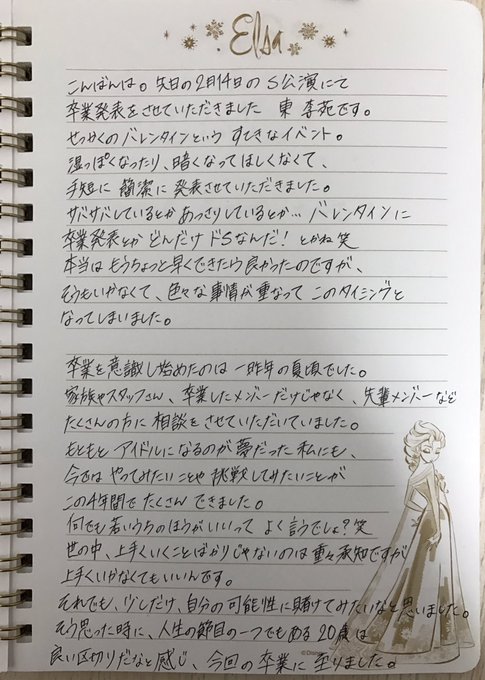 Elsa
こんばんは。先日の2月14日の S公演にて
卒業発表をさせていただきました 東 李苑です。
せっかくのバレンタインという すてきなイベント。
湿っぽくなったり、暗くなってほしくなくて、
手短に 簡潔に 発表させていただきました。
サバサバしているとか あっさりしているとか… バレンタインに
卒業発表とか どんだけ ドSなんだ! とかね 笑
本当は もうちょっと早くできたら良かったのですが、
そうもいかなくて、色々な事情が重なって このタイミングと
なってしまいました。
卒業を意識し始めたのは 一昨年の夏頃でした。
家族やスタッフさん、卒業したメンバーだけじゃなく、先輩メンバーなど
たくさんの方に 相談をさせていただいていました。
もともと アイドルになるのが 夢だった 私にも、
今では やってみたいことや 挑戦してみたいことが
この4年間で たくさん できました。
何でも 若いうちのほうがいいって よく言うでしょ?笑
世の中、上手くいくことばかりじゃないのは 重々承知ですが
上手くいかなくてもいいんです。
それでも、少しだけ、自分の可能性に賭けてみたいなと思いました。
そう思った時に、人生の節目の一つでもある 20歳は
良い区切りだなと感じ、今回の卒業に 至りました。
©Disney